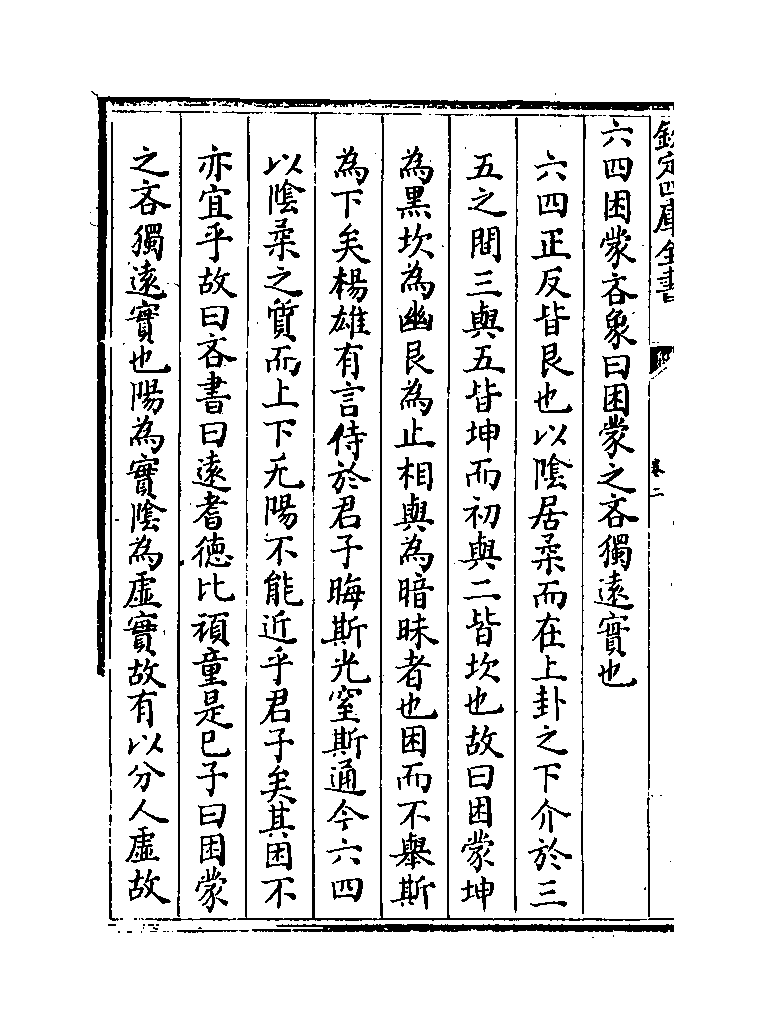 欽定四庫全書
卷二
六四困蒙吝象曰困蒙之吝獨遠實也
六四正反皆艮也以陰居柔而在上卦之下介於三
五之間三與五皆坤而初與二皆坎也故曰困蒙坤
為黑坎為幽艮為止相與為暗昧者也困而不舉斯
為下矣楊雄有言侍於君子晦斯光窒斯通今六四
以陰柔之質而上下无陽不能近乎君子矣其困不
亦宜乎故曰吝書曰遠耆德比頑童是已子曰困蒙
之吝獨遠實也陽為實陰為虛實故有以分人虛故